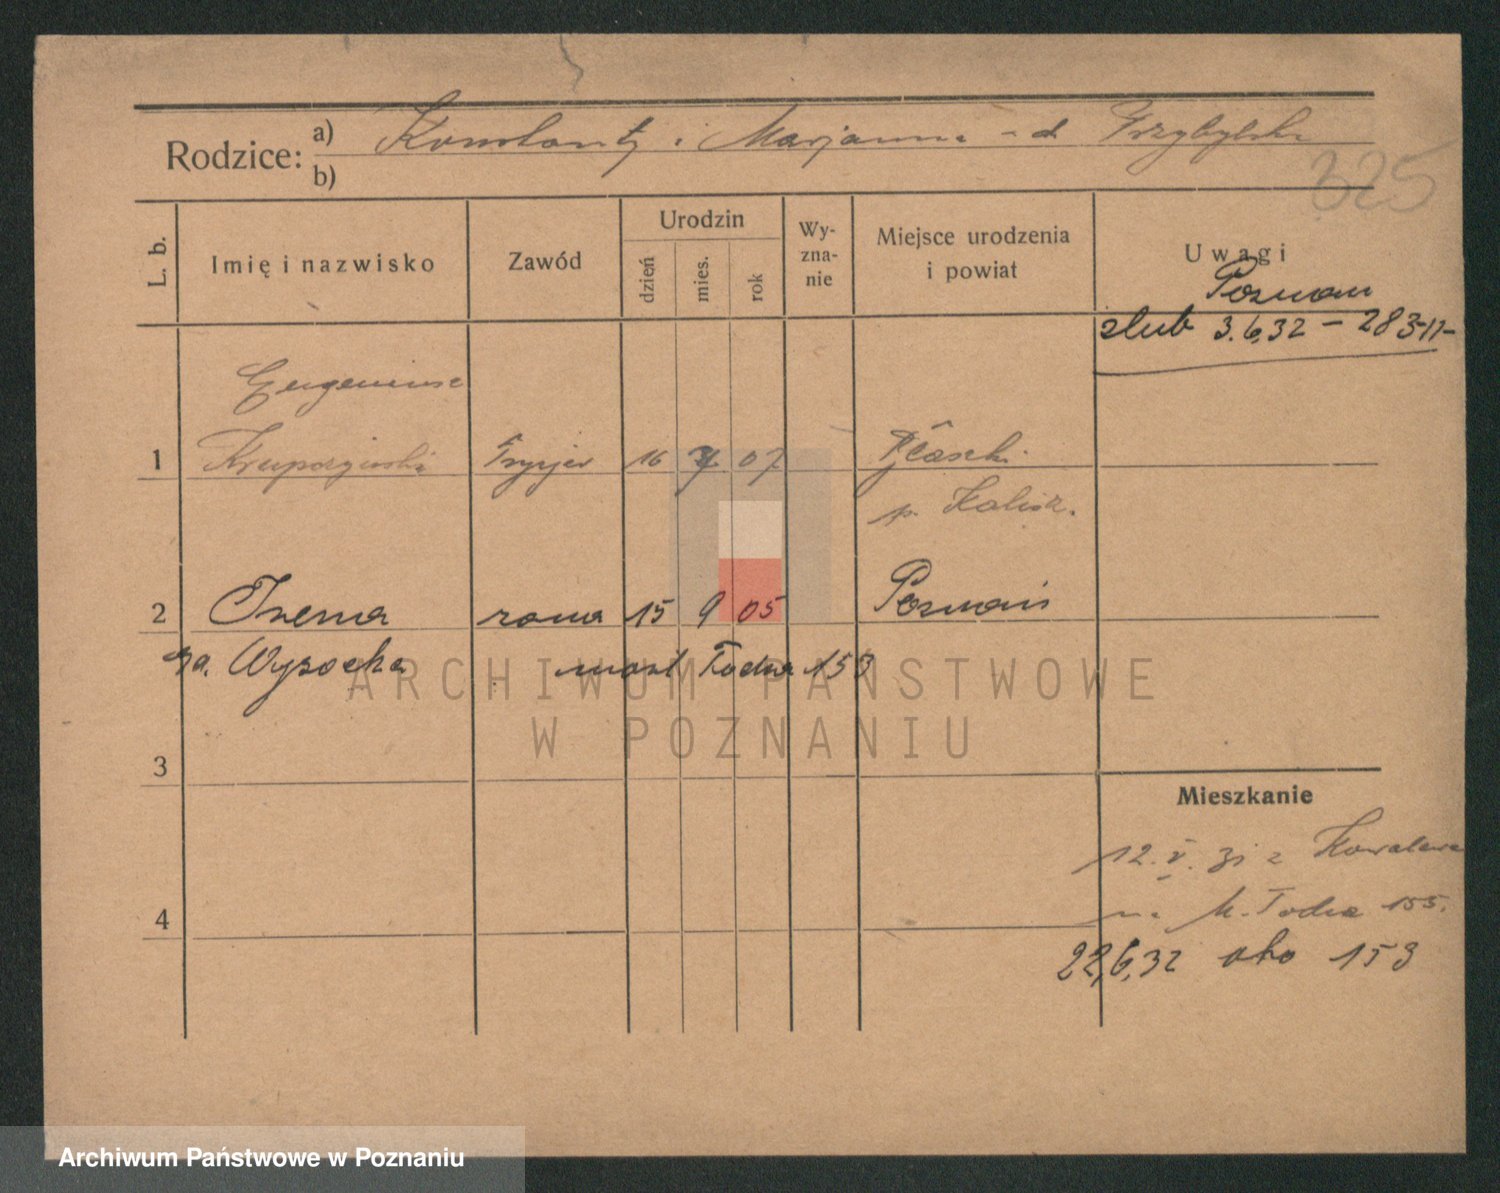 Rodzice: a) Konstanty i Marjanna - d. Przybylska
b)
325
L. b.
Imię i nazwisko
Zawód
Urodzin
dzień
mies.
rok
Wy-
zna-
nie
Miejsce urodzenia
i powiat
Uwagi
Poznań
ślub 3.6.32 - 283-II-
Eugeniusz
1 Krupczyński Fryzjer 16 07
p. Kalisz.
2 Irena żona 15 9 05 Poznań
za. Wysocka most Todta 153
ARCHIWUM PAŃSTWOWE
W POZNANIU
3
Mieszkanie
12. V. 31 z Kowalewa
na 155.
4
22,6,32 oko 153
Archiwum Państwowe w Poznaniu